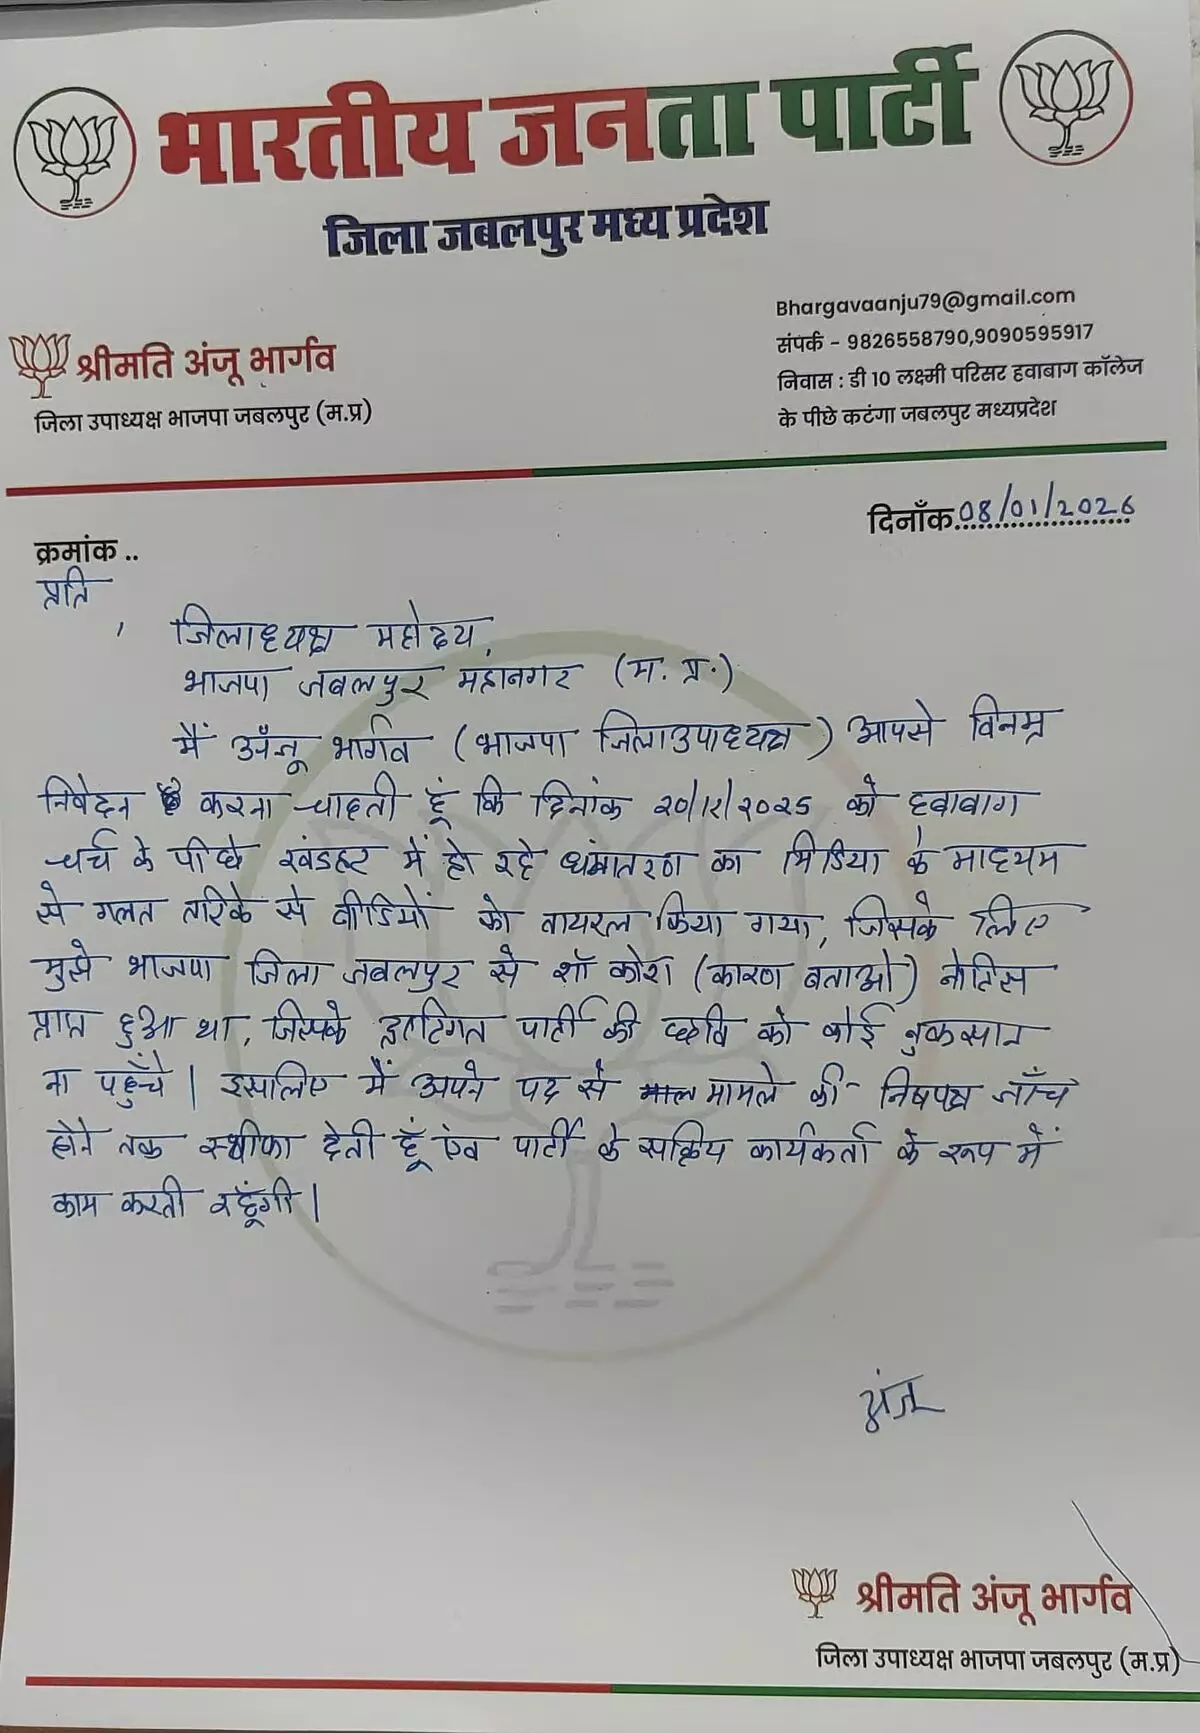 भारतीय जनता पार्टी
जिला जबलपुर मध्य प्रदेश
Bhargavaanju79@gmail.com
संपर्क - 9826558790,9090595917
निवास : डी 10 लक्ष्मी परिसर हवाबाग कॉलेज
के पीछे कटंगा जबलपुर मध्यप्रदेश
श्रीमति अंजू भार्गव
जिला उपाध्यक्ष भाजपा जबलपुर (म.प्र)
दिनाँक 08/01/2026
क्रमांक ..
प्रति
,
जिलाध्यक्ष महोदय,
भाजपा जबलपुर महानगर (म. प्र.)
मैं अँजू भार्गव (भाजपा जिलाउपाध्यक्ष) आपसे विनम्र
निवेदन करना चाहती हूं कि दिनांक २०/१२/२०२५ को हवाबाग
चर्च के पीछे खंडहर में हो रहे धंमातरण का मिडिया के माध्यम
से गलत तरिके से वीडियों को वायरल किया गया, जिसके लिए
मुझे भाजपा जिला जबलपुर से शॉ कोश (कारण बताओ) नोटिस
प्राप्त हुआ था, जिसके पार्टी की छवि को कोई नुकसान
ना पहुँचे। इसलिए मैं अपने पद से मामले की निषपक्ष जाँच
होने तक स्थीफा देती हूँ एंव पार्टी के सक्रिय कार्यकर्ता के रूप में
काम करती रहूँगी।
अंजू
श्रीमति अंजू भार्गव
जिला उपाध्यक्ष भाजपा जबलपुर (म.प्र)